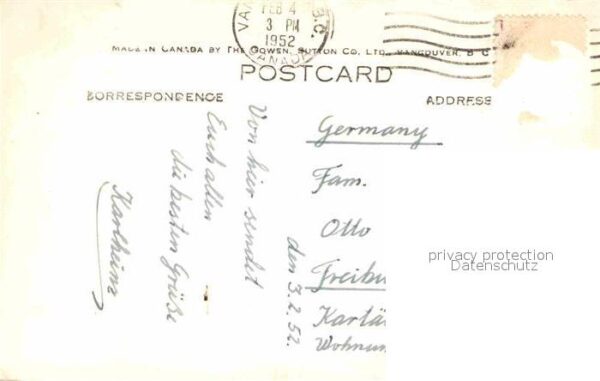 VAN B.C.
FEB 4
3 PM
1952
CANADA
MADE IN CANADA BY THE GOWEN, SUTTON CO. LTD., VANCOUVER, B.C.
POSTCARD
CORRESPONDENCE
ADDRESS
den 3.2.52.
Von hier sendet
Euch allen
die besten Grüße
Karlheinz
Germany
Fam.
Otto
Freibu
Kartä
Wohnun
privacy protection
Datenschutz